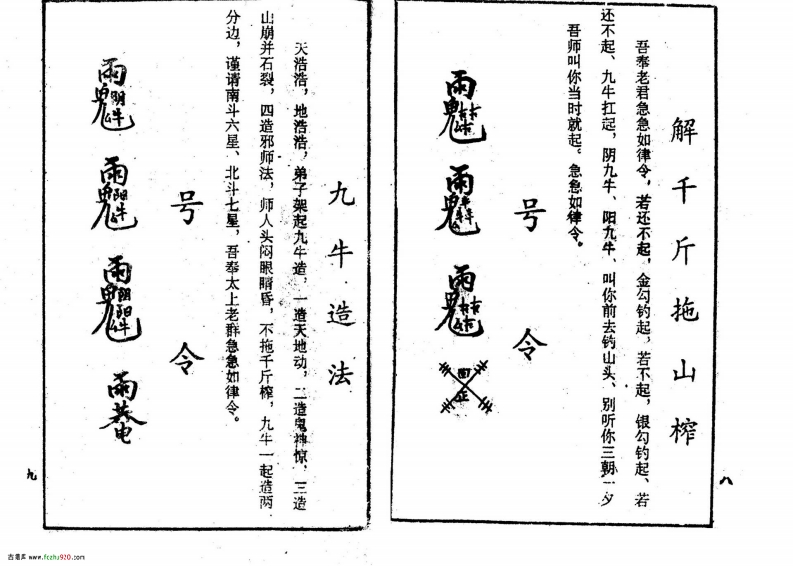 解千斤拖山榨
吾奉老君急急如律令，若还不起，金勾钓起，若不起，银勾钓起、若
还不起、九牛扛起，阴九牛、阳九牛、叫你前去钓山头、别听你三朝一夕
吾师叫你当时就起。急急如律令。
号令
八
九牛造法
天浩浩，地浩浩，弟子架起九牛造，一造天地动，二造鬼神惊，三造
山崩并石裂，四造邪师法，师人头闷眼睛昏，不拖千斤榨，九牛一起造两
分边，谨请南斗六星、北斗七星，吾奉太上老群急急如律令。
号令
九
古籍库 www.fczhu920.com